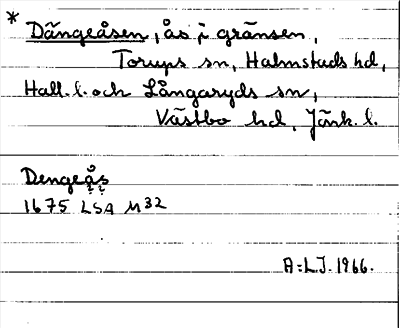 * Dängeåsen, ås i gränsen,
Torups sn, Halmstads hd,
Hall. l. och Långaryds sn,
Västbo hd, Jönk. l.
Dengeås
1675 LSA M32
A:LJ. 1966.